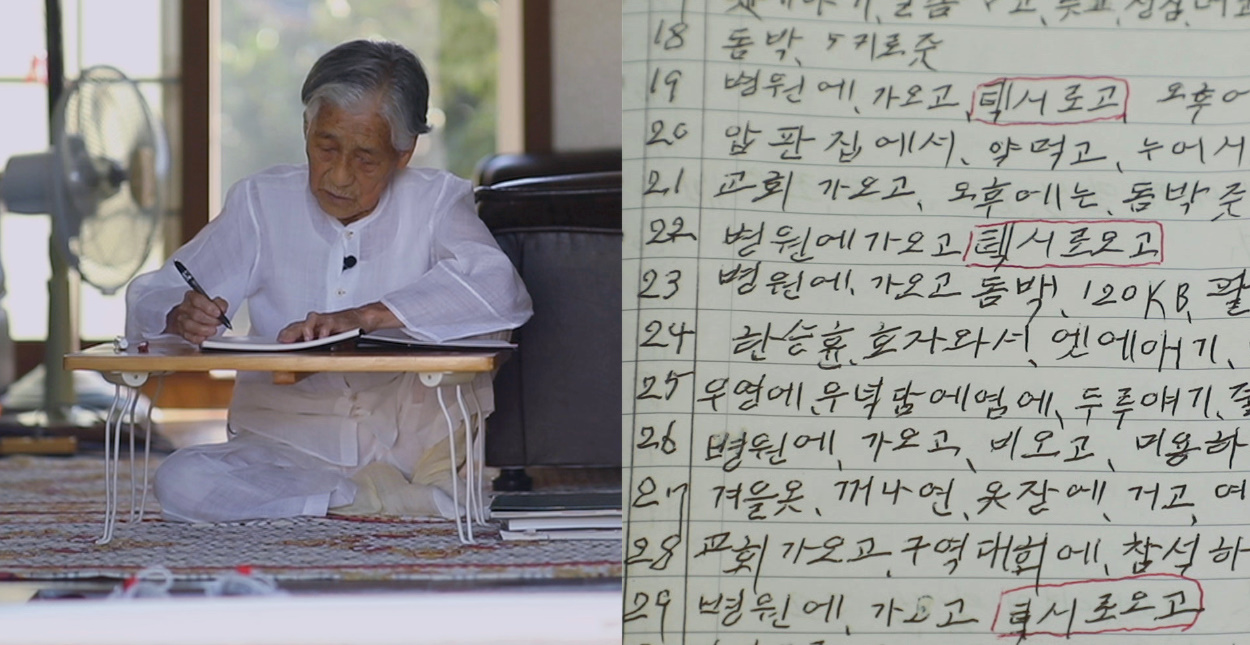 18 돔박, 5키로 줏
19 병원에, 가오고, 턱서로고 오후
20 압판집에서, 약먹고, 누어서
21 교회 가오고, 오후에는, 돔박 줏
22 병원에 가오고 턱서로오고
23 병원에, 가오고 돔박, 120KB,
24 호자와서, 엣에애기,
25 우영에, 우녁담에염에, 두루얘기,
26 병원에, 가오고, 비오고, 미용하
27 겨을옷, 꺼나연, 옷잘에, 거고, 여
28 교회 가오고, 구역대회에, 참석하
29 병원에, 가오고 턱서로오고